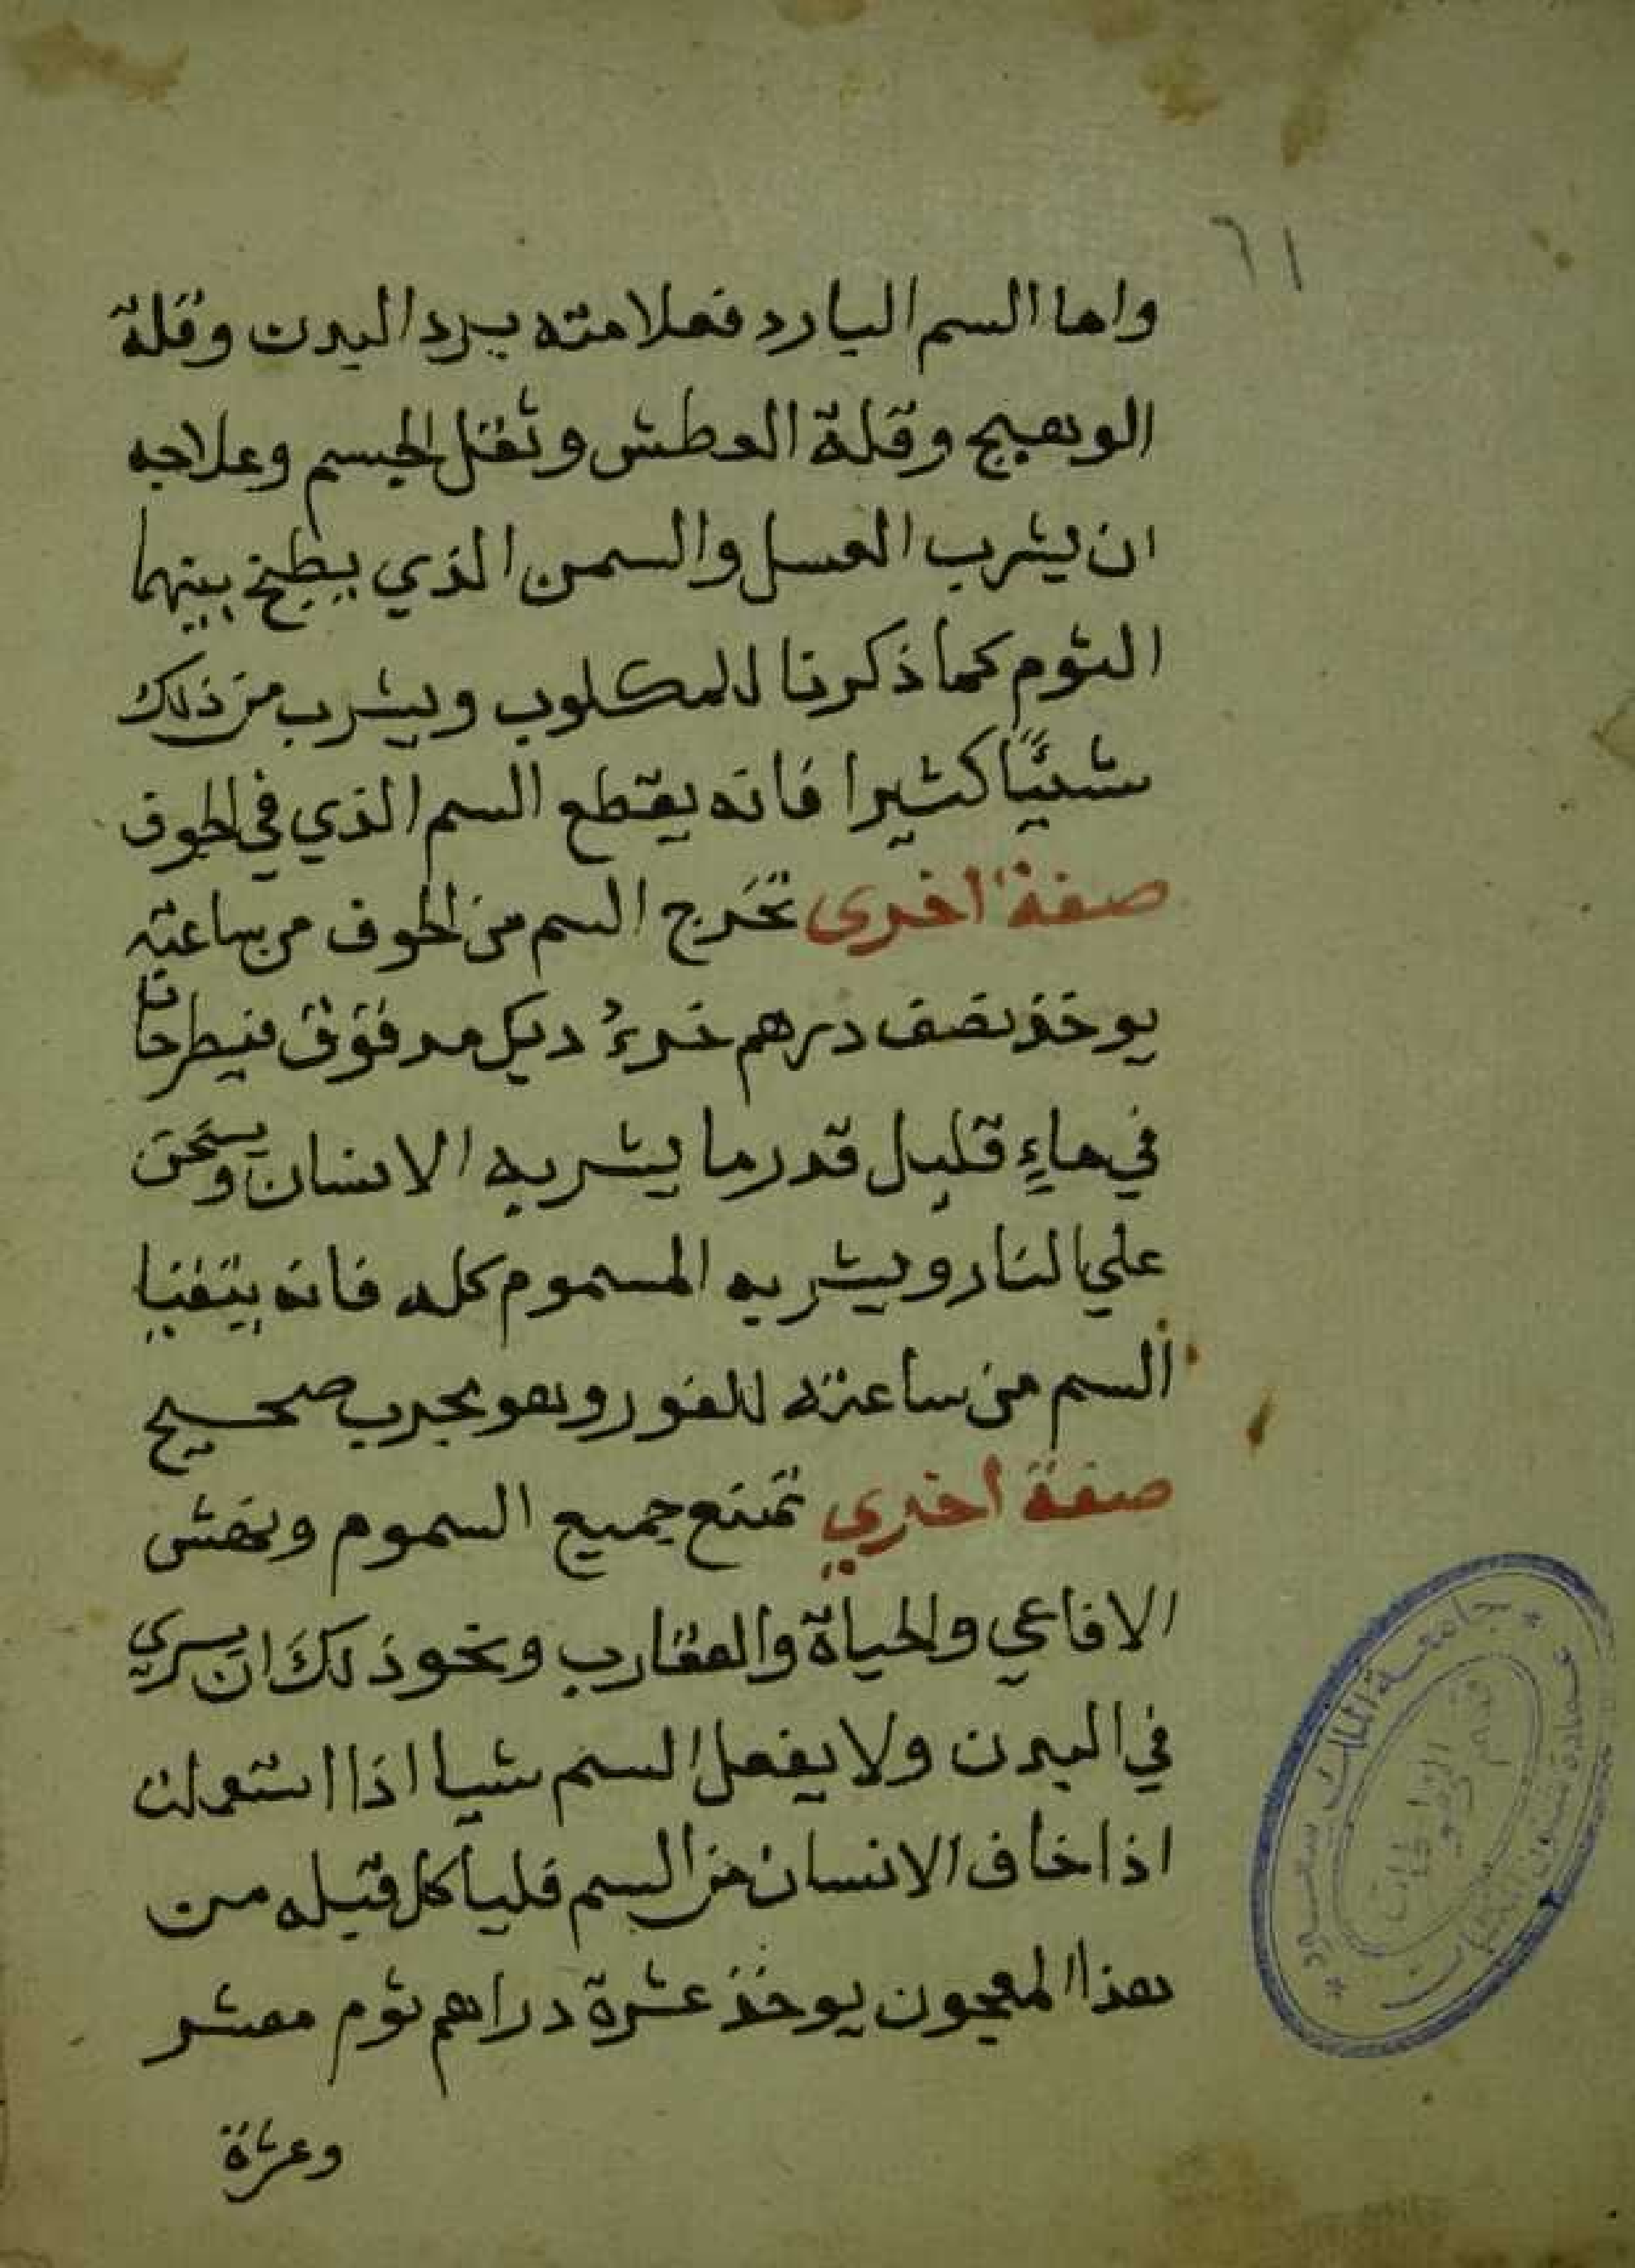 ٦١
واما السم البارد فعلامته برد البدن وقلة
الوهيج وقلة العطش وثقل الجسم وعلاجه
ان يشرب العسل والسمن الذي يطبخ بينهما
الثوم كما ذكرنا للمكلوب ويشرب من ذلك
شيئًا كثيرا فانه يقطع السم الذي في الجوف
صفة اخرى تخرج السم من الجوف من ساعته
يوخذ نصف درهم خرءُ ديك مدقوق فيطرحا
في ماءٍ قليل قدر ما يشربه الانسان ويسخن
علي النار ويشربه المسموم كله فانه يتقيا
السم من ساعته للفور وهو مجرب صحيح
صفة اخري تمنع جميع السموم ونهش
الافاعي والحياة والعقارب ونحو ذلك ان يسري
في البدن ولا يفعل السم شيا اذا استعملت
اذا خاف الانسان من السم فليأكل قبله من
هذا المعجون يوخذ عشرة دراهم ثوم مقشر
وعشرة
جامعة الملك سعود
عمادة شئون المكتبات
قسم المخطوطات